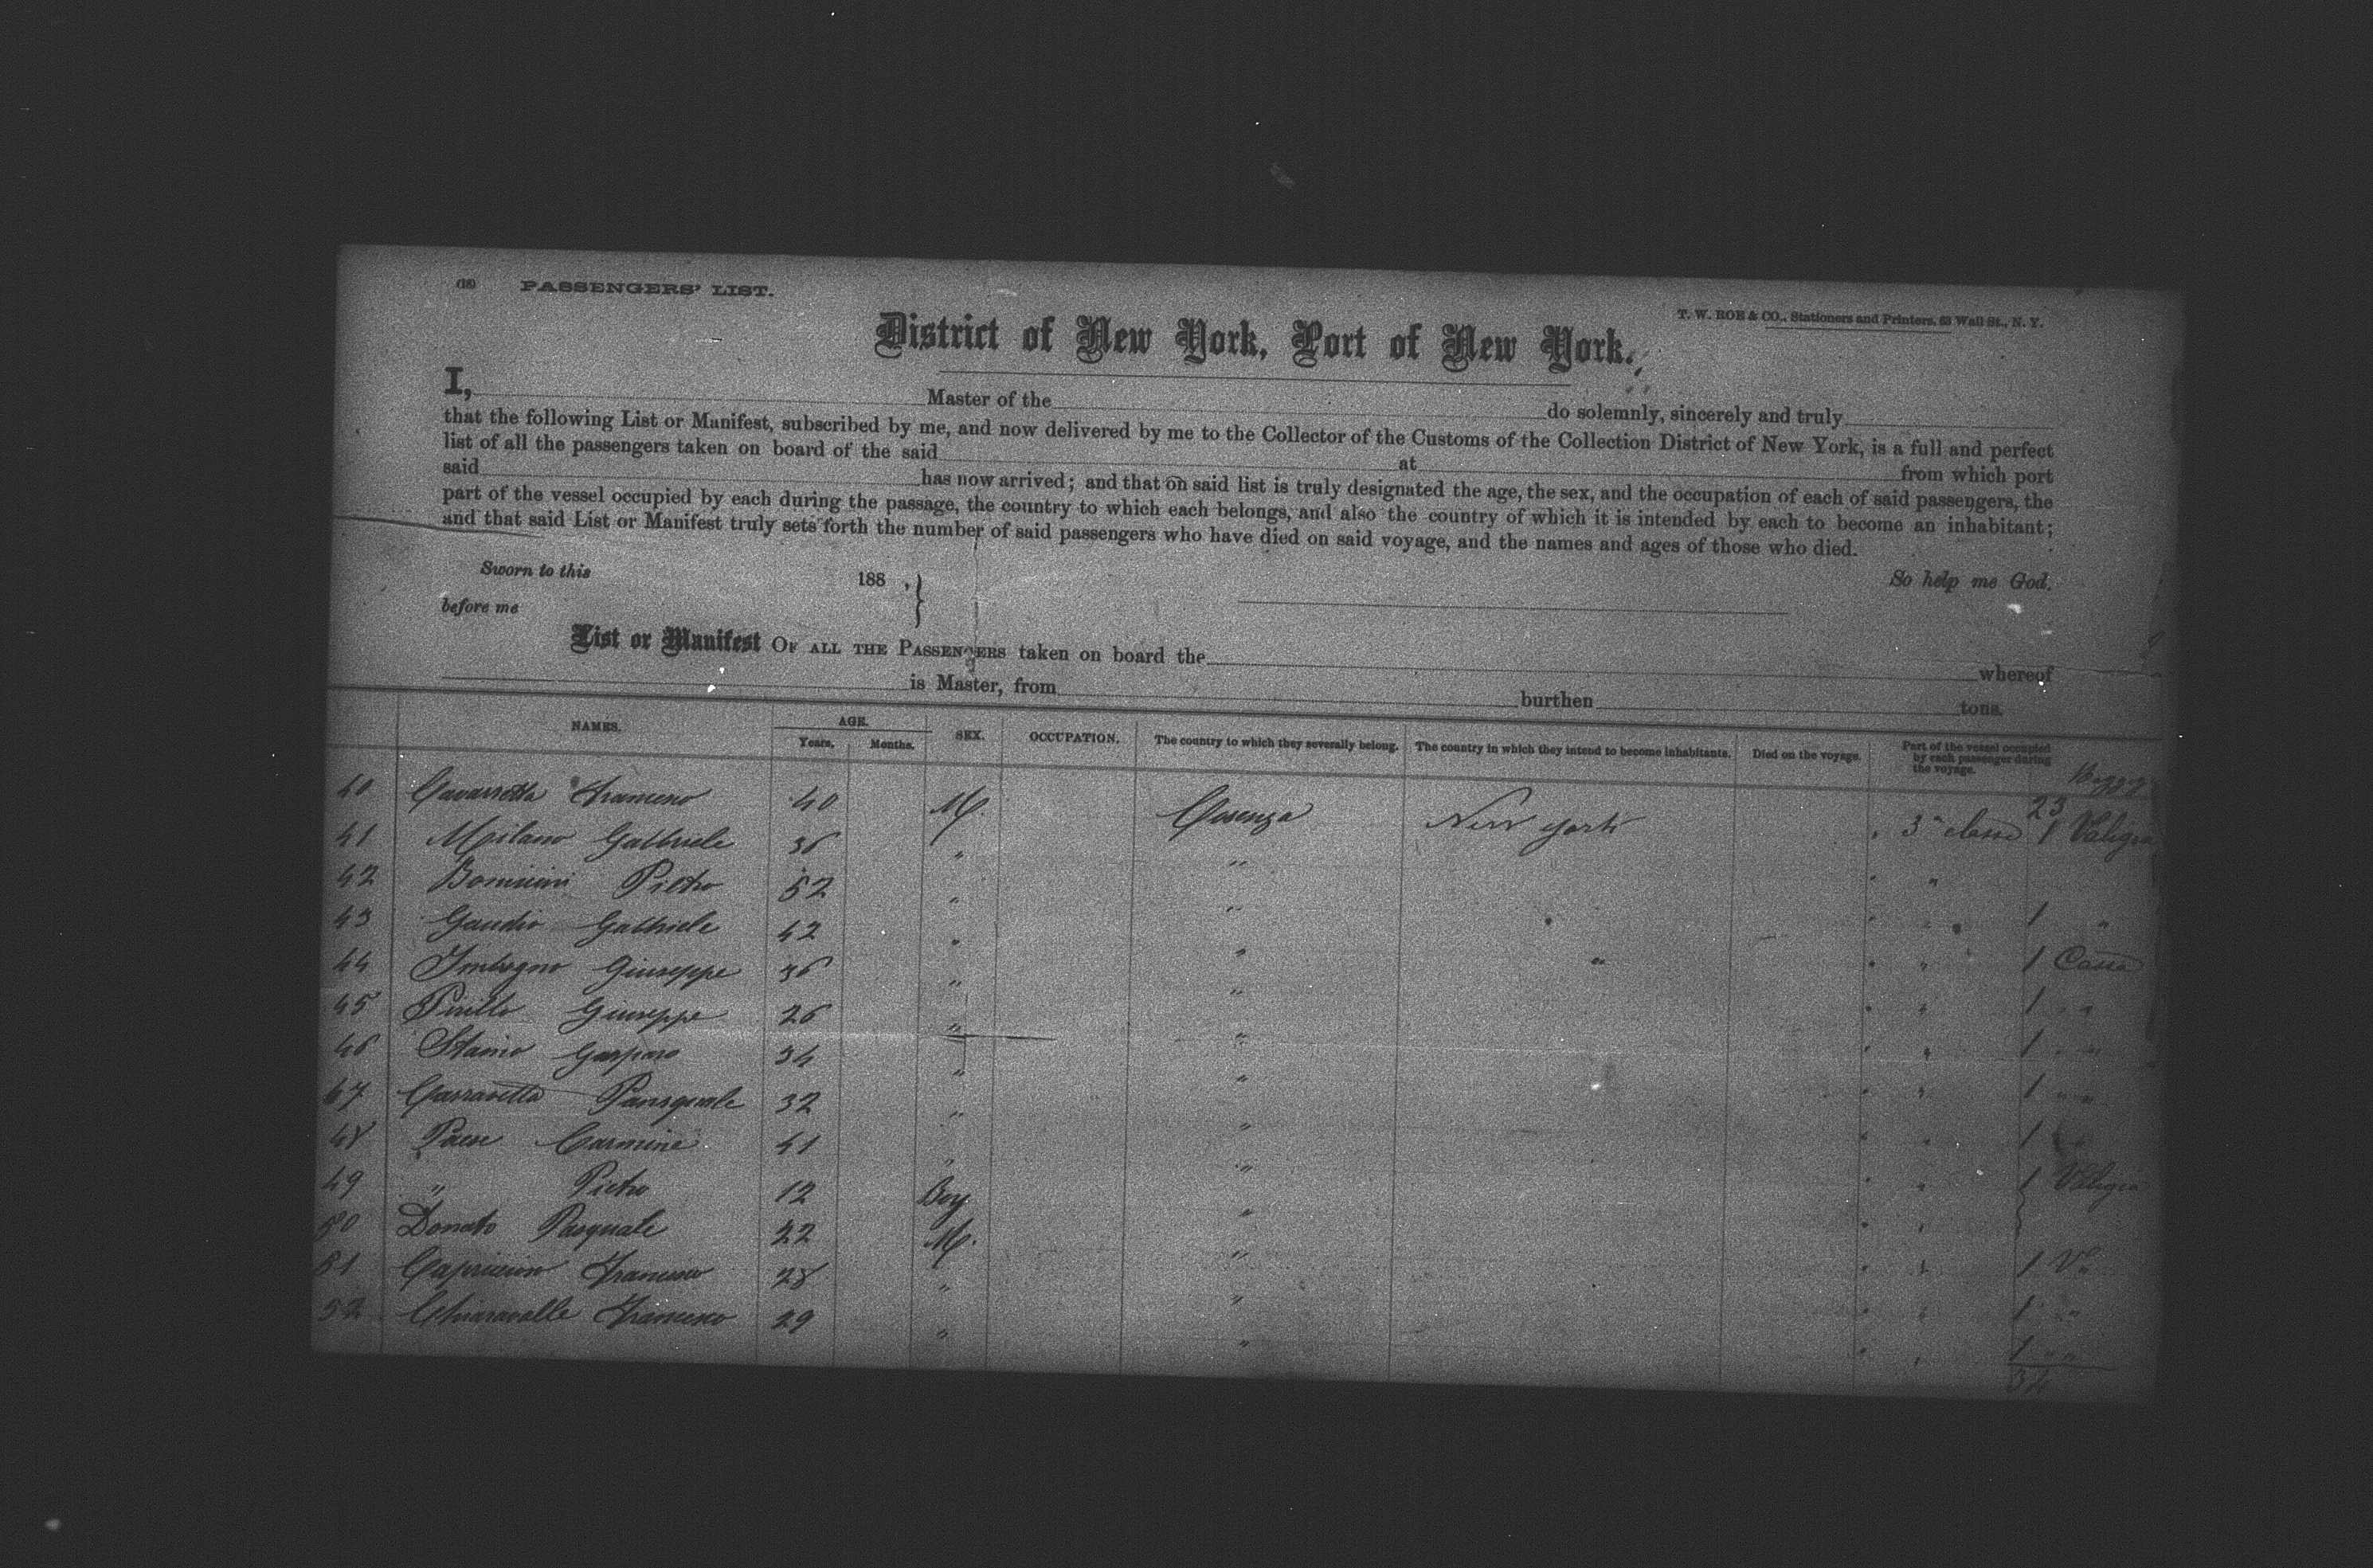 (18) PASSENGERS' LIST.
T. W. ROE & CO., Stationers and Printers, 63 Wall St., N. Y.
District of New York, Port of New York.
I, Master of the do solemnly, sincerely and truly
that the following List or Manifest, subscribed by me, and now delivered by me to the Collector of the Customs of the Collection District of New York, is a full and perfect
list of all the passengers taken on board of the said at from which port
said has now arrived; and that on said list is truly designated the age, the sex, and the occupation of each of said passengers, the
part of the vessel occupied by each during the passage, the country to which each belongs, and also the country of which it is intended by each to become an inhabitant;
and that said List or Manifest truly sets forth the number of said passengers who have died on said voyage, and the names and ages of those who died.
Sworn to this 188 , So help me God.
before me
List or Manifest OF ALL THE PASSENGERS taken on board the whereof
is Master, from burthen tons.
NAMES. AGE. Years. Months. SEX. OCCUPATION. The country to which they severally belong. The country in which they intend to become inhabitants. Died on the voyage. Part of the vessel occupied by each passenger during the voyage.
23
40 Cavarretta Francesco 40 M. Cosenza New York 3a classe 1 Valigia
41 Milano Gabbriele 36 " " "
42 Pietro 52 " " 1 "
43 Gaudio Gabbriele 42 " " " " 1 Cassa
44 Imbrogno Giuseppe 36 " " " 1 " "
45 Pirillo Giuseppe 26 " " " 1 " "
46 Staino Gasparo 34 " " " 1 " "
47 Carravetta Pansquale 32 " " " 1
48 Pace Carmine 41 " " " 1 Valigia
49 " Pietro 12 Boy " "
50 Donato Pasquale 22 M. " " 1 Va
51 Francesco 28 " " " 1 "
52 Chiaravalle Francesco 29 " " " 1 " "
32